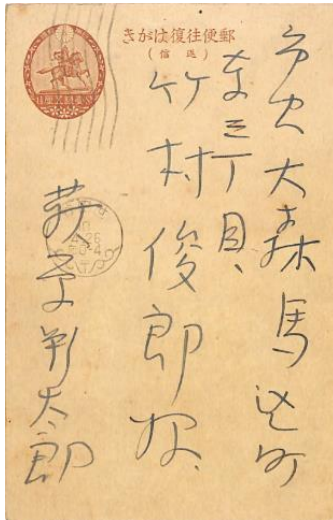 郵便往復はがき
（返信）
市内大森馬込町
東三丁目、
竹村俊郎様
萩原朔太郎